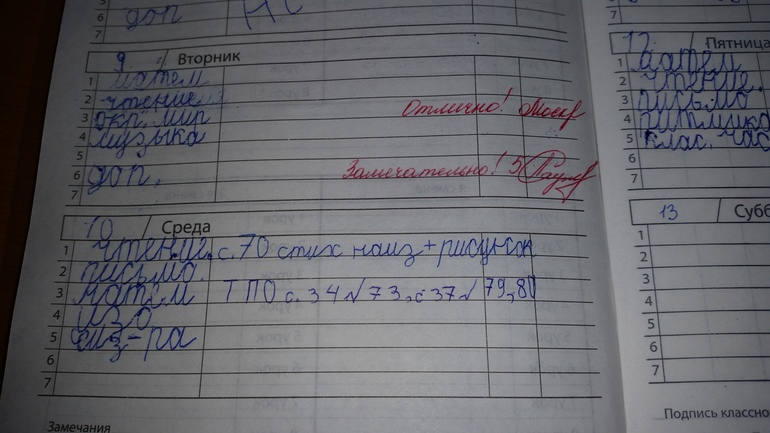 6 доп
7
9 Вторник
1 матем
2 чтение
3 окр. мир Отлично!
4 музыка
5
6 доп. Замечательно! 5
7
10 Среда
1 чтение. с. 70 стих наиз + рисунок
2 письмо.
3 матем ТПО с. 34 √73, с 37 √79, 80
4 изо
5 физ-ра
6
7
Замечания
7
12 Пятница
1 матем
2 чтение.
3 письмо
4 ритмика
5 клас. час
6
7
13 Субб
1
2
3
4
5
6
7
Подпись классно